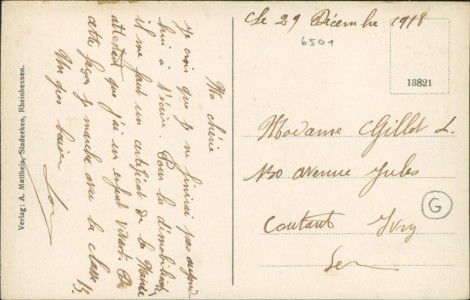 Le 29 Décembre 1918
6501
13821
Ma chérie
je crois que je ne finirai pas aujourd
hui à t'écrire. Pour la démobilisation
il me faut un certificat de la Mairie
attestant que j'ai un enfant vivant. De
cette façon je marche avec la classe
Un gros baiser
Verlag: A. Mattheis, Stadecken, Rheinhessen.
Madame Gillot L.
130 avenue Jules
Coutant Ivry
Seine
G